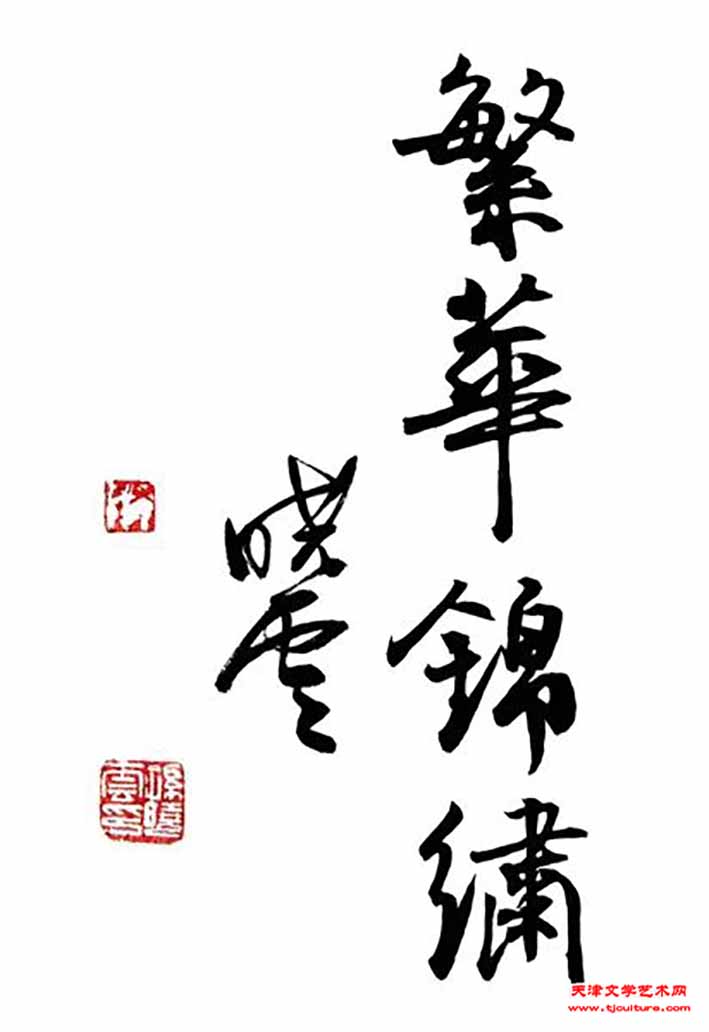 繁華錦繡
曉雲
孫曉雲印
天津文学艺术网
www.tjculture.com